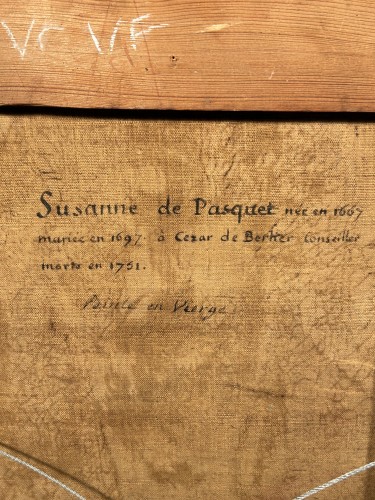 Vr VF
Susanne de Pasquet née en 1667
mariée en 1697 à Cezar de Berlier Conseiller
morte en 1751.
Peinte en Vierge